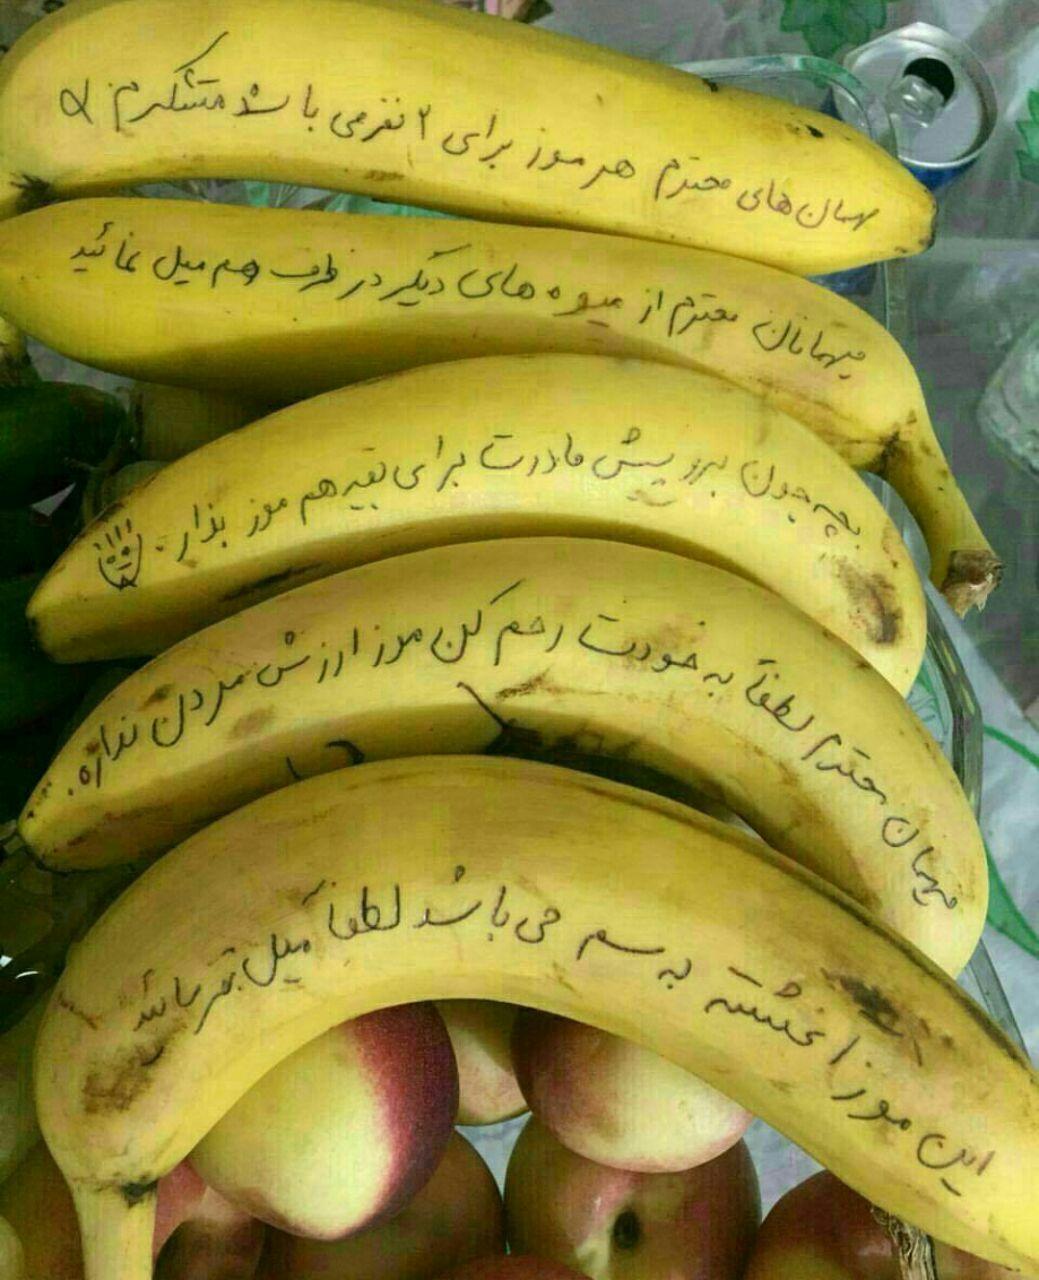 مهمان‌های محترم هر موز برای ۲ نفر می باشد متشکرم
میهمانان محترم از میوه های دیگر در ظرف هم میل نمائید
بچه جون برو پیش مادرت برای بقیه هم موز بذار.
میهمان محترم لطفاً به خودت رحم کن موز ارزش مردن نداره.
این موز اغشته به سم می باشد لطفاً میل بفرمائید